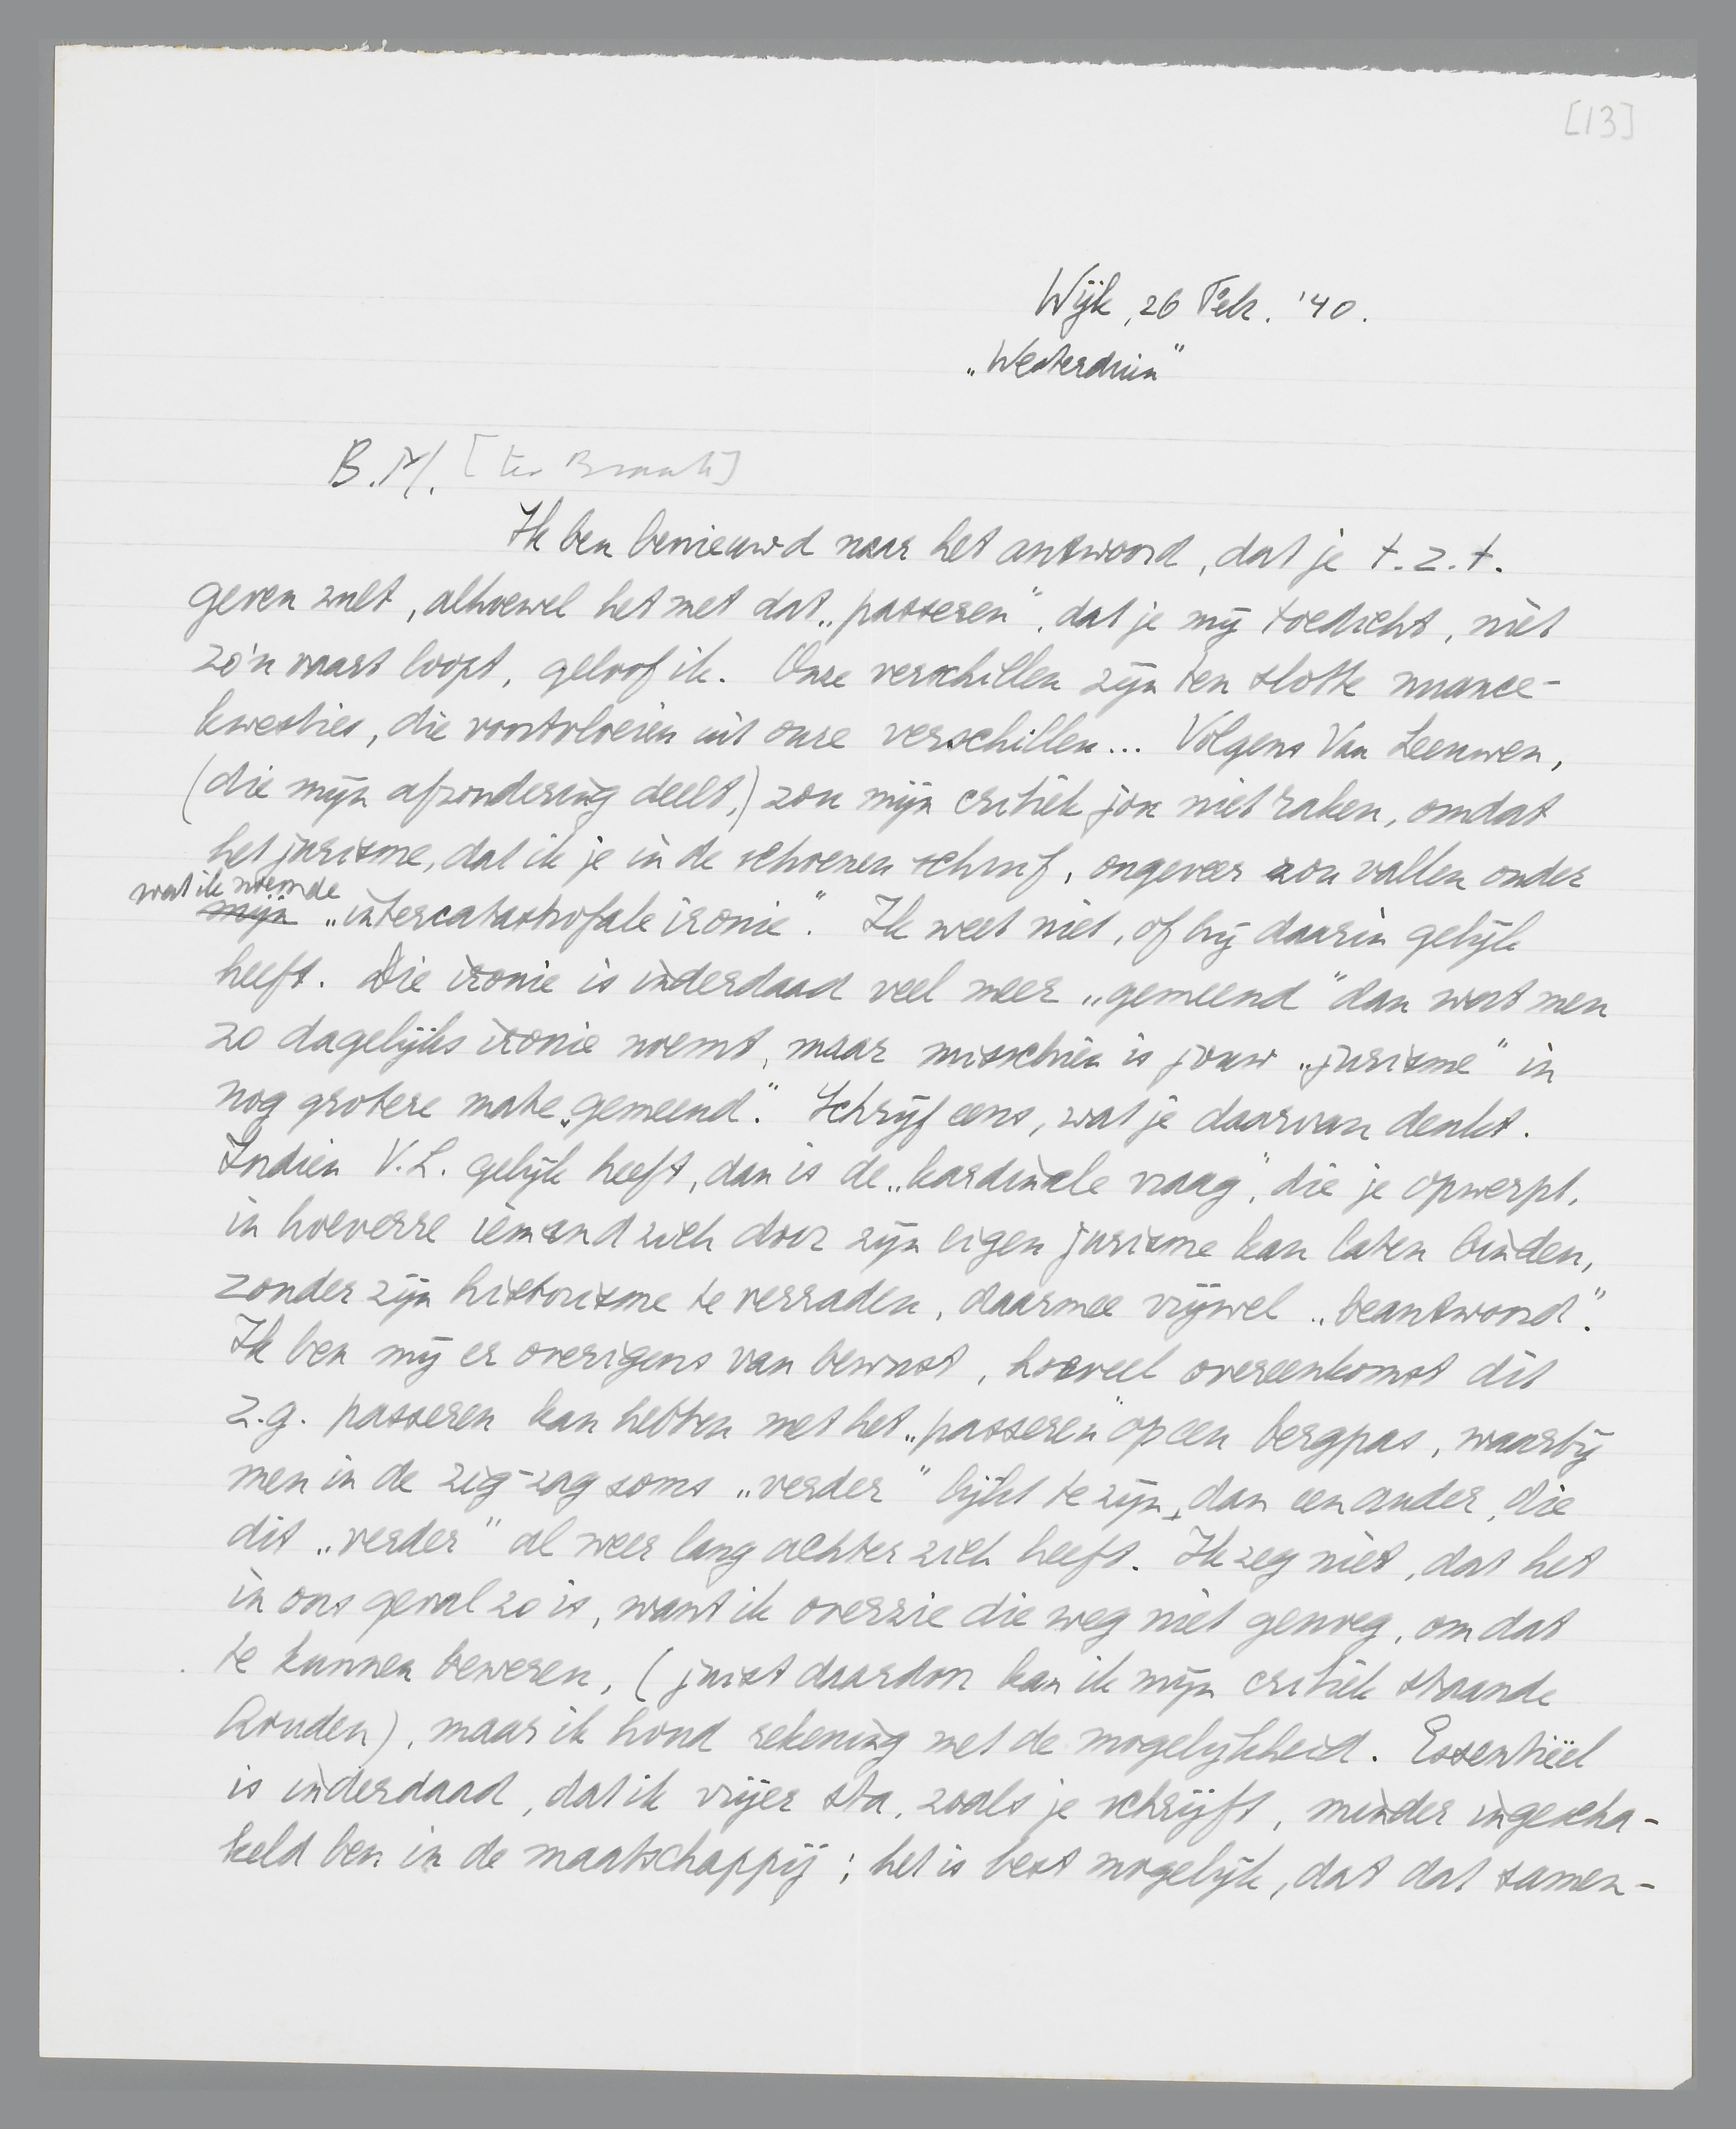 [13]
Wijk, 26 Febr. '40.
„Westerduin"
B.M. [ter Braak]
Ik ben benieuwd naar het antwoord, dat je t.z.t.
geven zult, alhoewel het met dat „passeren", dat je mij toedicht, niet
zo'n vaart loopt, geloof ik. Onze verschillen zijn ten slotte nuance-
kwesties, die voortvloeien uit onze verschillen... Volgens Van Leeuwen,
(die mijn afzondering deelt,) zou mijn critiek jou niet raken, omdat
het jurisme, dat ik je in de schoenen schuif, ongeveer zou vallen onder
wat ik noemde
mijn „intercatastrofale ironie". Ik weet niet, of hij daarin gelijk
heeft. Die ironie is inderdaad veel meer „gemeend" dan wat men
zo dagelijks ironie noemt, maar misschien is jouw „jurisme" in
nog grotere mate „gemeend". Schrijf eens, wat je daarvan denkt.
Indien V.L. gelijk heeft, dan is de „kardinale vraag", die je opwerpt,
in hoeverre iemand zich door zijn eigen jurisme kan laten binden,
zonder zijn historisme te verraden, daarmee vrijwel „beantwoord".
Ik ben mij er overigens van bewust, hoeveel overeenkomst dit
z.g. passeren kan hebben met het „passeren" op een bergpas, waarbij
men in de zig-zag soms „verder" lijkt te zijn, dan een ander, die
dit „verder" al weer lang achter zich heeft. Ik zeg niet, dat het
in ons geval zo is, want ik overzie die weg niet genoeg, om dat
te kunnen beweren, (juist daardoor kan ik mijn critiek staande
houden), maar ik houd rekening met de mogelijkheid. Essentiëel
is inderdaad, dat ik vrijer sta, zoals je schrijft, minder ingescha-
keld ben in de maatschappij; het is best mogelijk, dat dat samen-